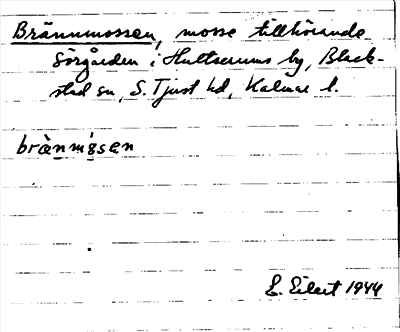 Brännmossen, mosse tillhörande
Sörgården i Hultserums by, Black-
stad sn, S. Tjust hd, Kalmar l.
brä̀nmɷ̀sən
E. Eilert 1944